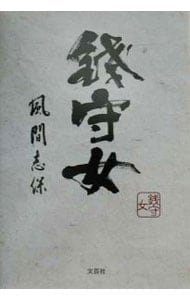 銭守女
風間志保
銭守
女
文芸社